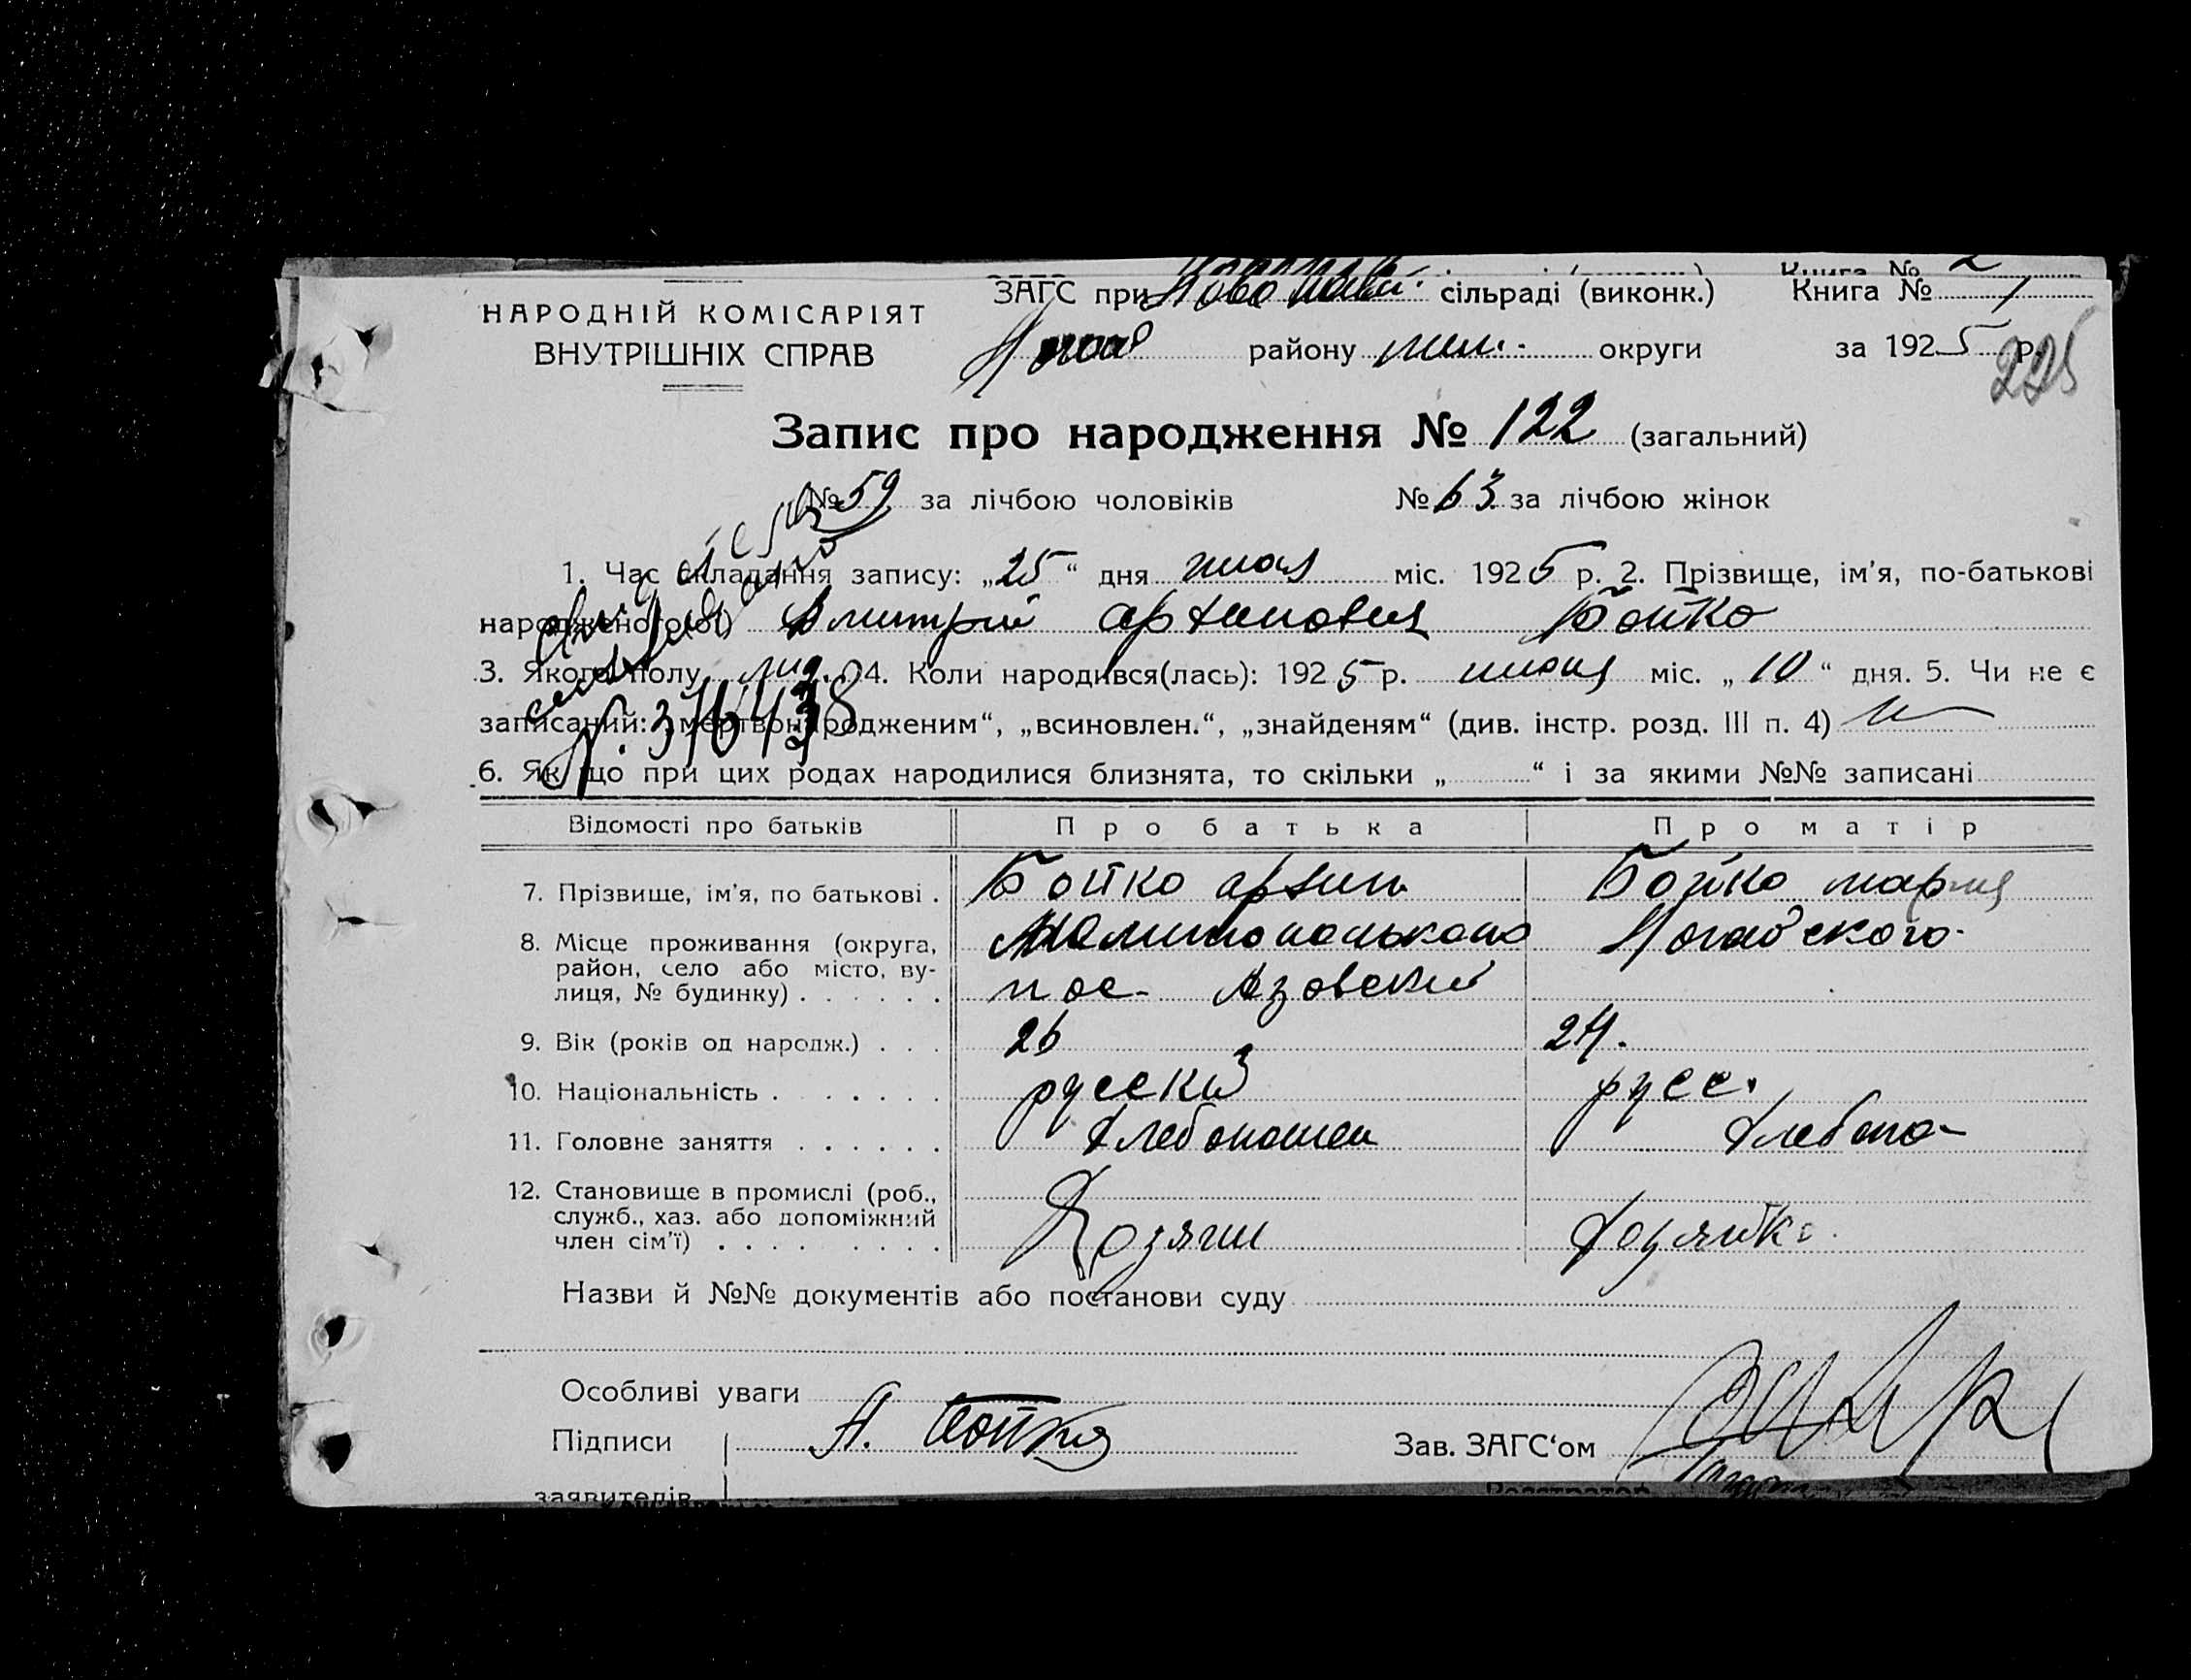 Книга № 2
НАРОДНІЙ КОМІСАРІЯТ
ВНУТРІШНІХ СПРАВ
ЗАГС при сільраді (виконк.) Книга № 1
району мел. округи за 1925 р.
225
Запис про народження № 122 (загальний)
№ 59 за лічбою чоловіків № 63 за лічбою жінок
1. Час складання запису: „25“ дня міс. 1925 р. 2. Прізвище, ім’я, по-батькові
народженого(ої) Дмитрий Бойко
3. Якого полу 4. Коли народився(лась): 1925 р. міс. „10“ дня. 5. Чи не є
записаний: „мертвонародженим“, „всиновлен.“, „знайденям“ (див. інстр. розд. III п. 4)
376438
6. Як що при цих родах народилися близнята, то скільки „ “ і за якими №№ записані
Відомості про батьків Про батька Про матір
7. Прізвище, ім’я, по батькові . Бойко Архип Бойко мария
8. Місце проживання (округа, Ногайского
район, село або місто, ву- пос. Азовский
лиця, № будинку) . . . . . .
9. Вік (років од народж.) . . . 26 24.
10. Національність . . . . . . . русский русс.
11. Головне заняття . . . . . . хлебопашец хлебопа-
12. Становище в промислі (роб.,
служб., хаз. або допоміжний
член сім’ї) . . . . . . . . Хозяин хозяйка
Назви й №№ документів або постанови суду
Особливі уваги
Підписи А. Бойко Зав. ЗАГС‘ом
заявителів Реєстратор